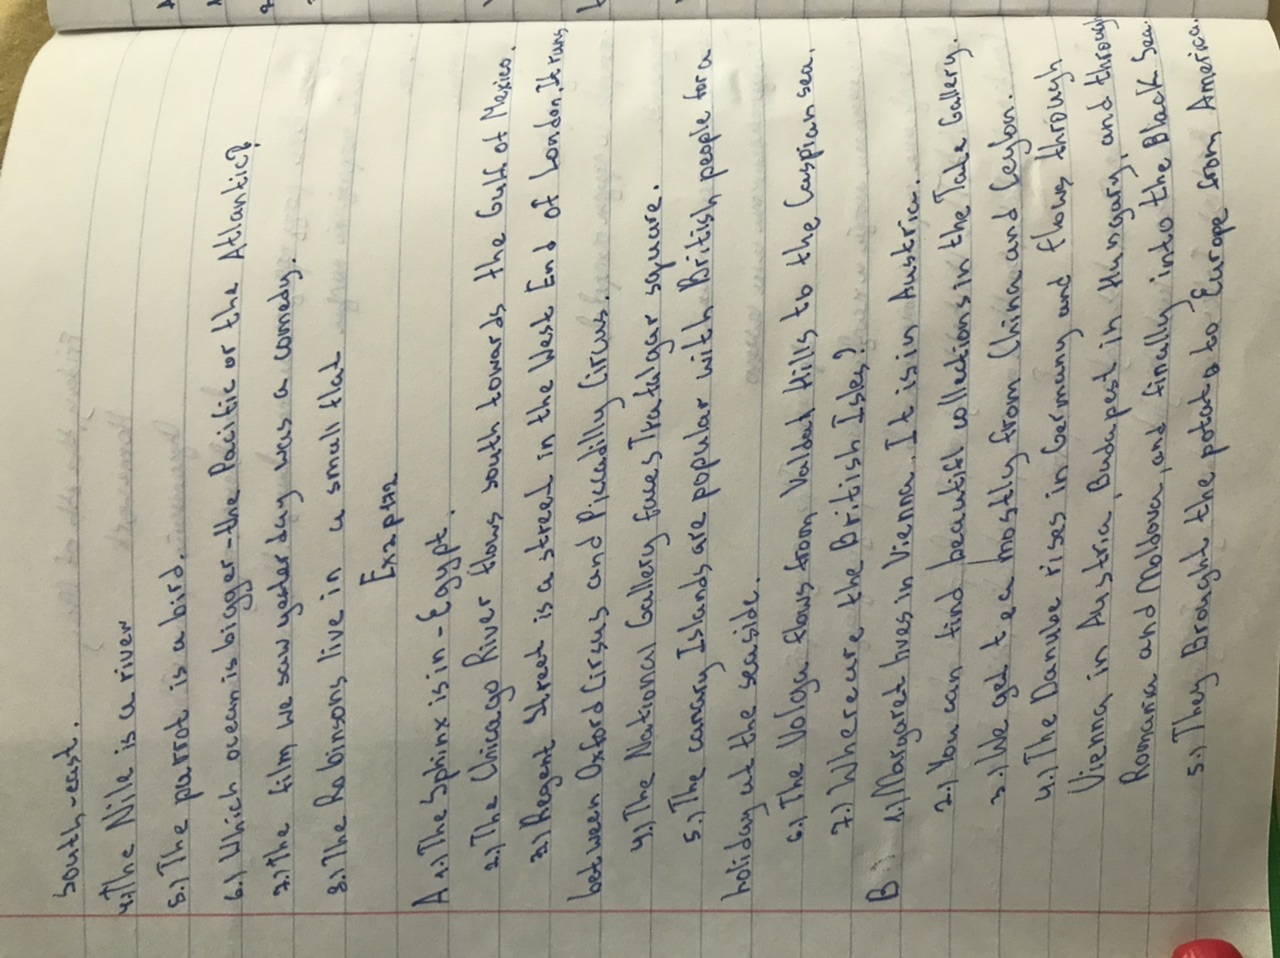 south-east.
4.) The Nile is a river
5.) The parrot is a bird.
6.) Which ocean is bigger - the Pacific or the Atlantic?
7.) The film we saw yesterday was a comedy.
8.) The Robinsons live in a small flat
Ex2 p172
A 1.) The Sphinx is in - Egypt.
2.) The Chicago River flows south towards the Gulf of Mexico.
3.) Regent Street is a street in the West End of London. It runs
between Oxford Circus and Piccadilly Circus.
4.) The National Gallery faces Trafalgar square.
5.) The canary Islands are popular with British people for a
holiday at the seaside.
6.) The Volga flows from Valdat Hills to the Caspian sea.
7.) Where are the British Isles?
B 1.) Margaret lives in Vienna. It is in Austria.
2.) You can find beautifl collections in the Tate Gallery.
3.) We get tea mostly from China and Ceylon.
4.) The Danube rises in Germany and flows through
Vienna in Austria, Budapest in Hungary, and through
Romania and Moldova, and finally into the Black Sea.
5.) They Brought the potato to Europe from America.